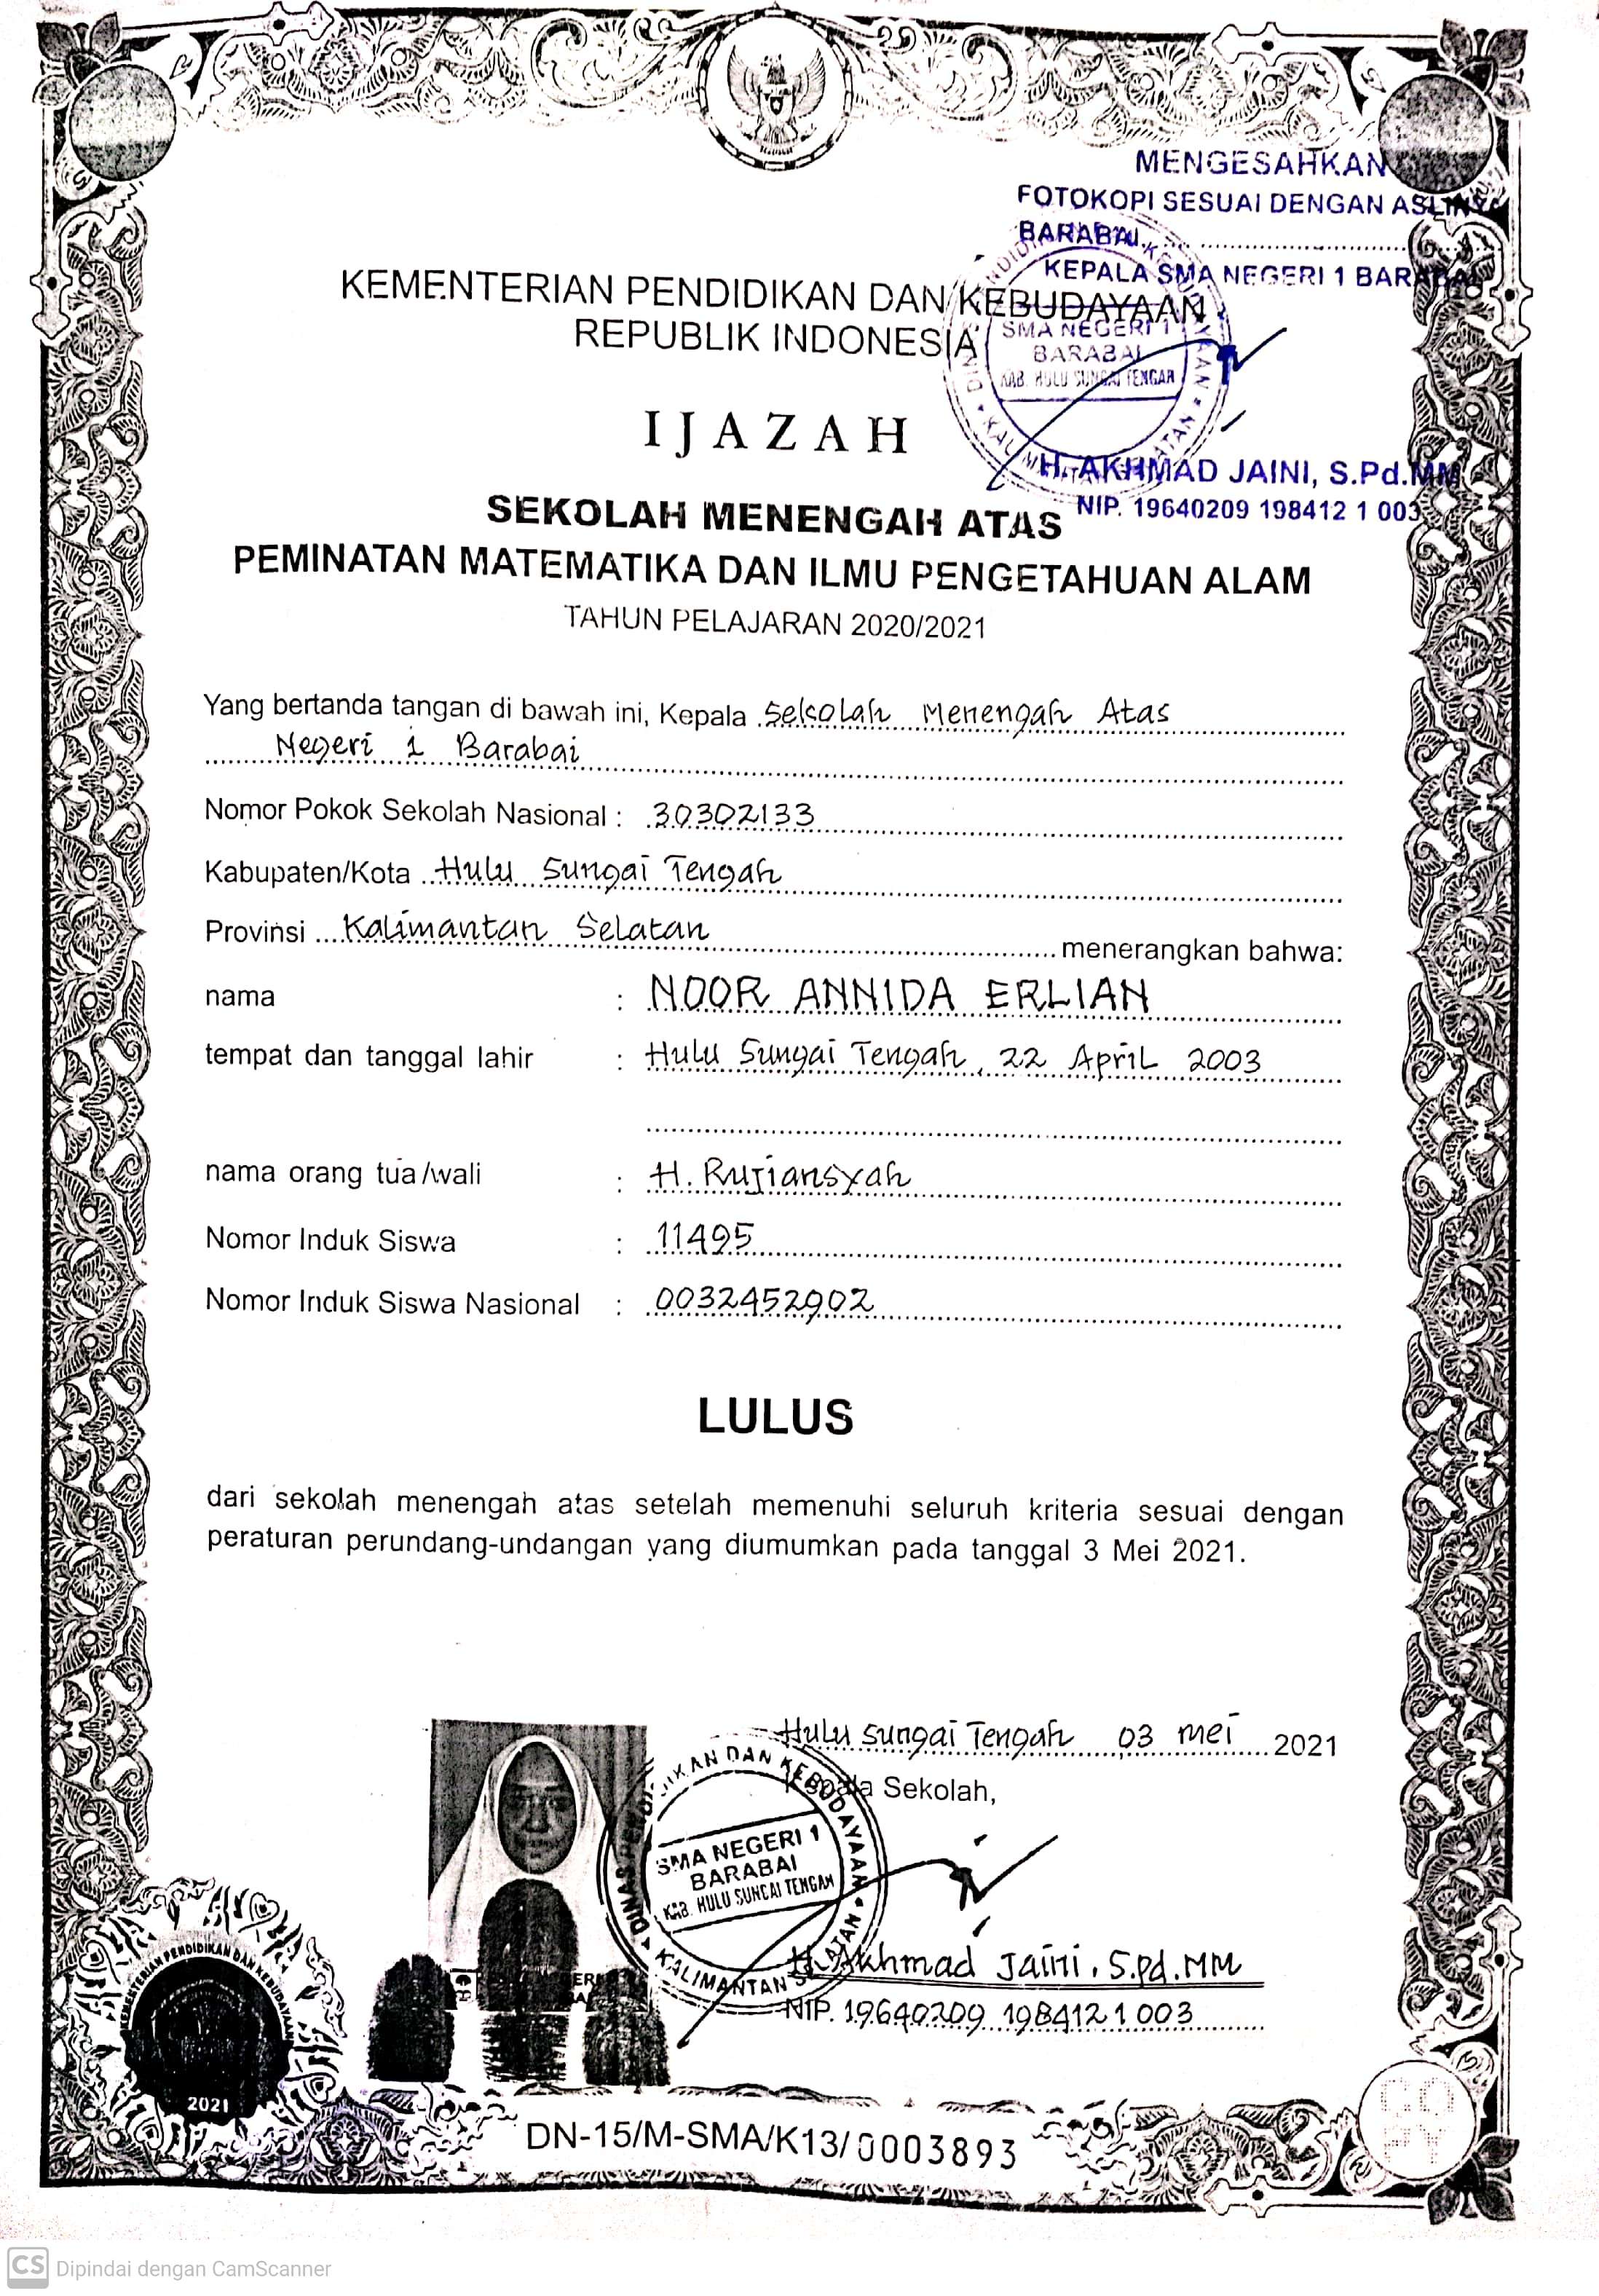 MENGESAHKAN
FOTOKOPI SESUAI DENGAN ASLINYA
BARABAI, ........................................
KEPALA SMA NEGERI 1 BARABAI
KEMENTERIAN PENDIDIKAN DAN KEBUDAYAAN
REPUBLIK INDONESIA
SMA NEGERI 1
BARABAI
KAB. HULU SUNGAI TENGAH
KALIMANTAN SELATAN
IJAZAH
H. AKHMAD JAINI, S.Pd.MM
NIP. 19640209 198412 1 003
SEKOLAH MENENGAH ATAS
PEMINATAN MATEMATIKA DAN ILMU PENGETAHUAN ALAM
TAHUN PELAJARAN 2020/2021
Yang bertanda tangan di bawah ini, Kepala Sekolah Menengah Atas
Negeri 1 Barabai
Nomor Pokok Sekolah Nasional : 30302133
Kabupaten/Kota Hulu Sungai Tengah
Provinsi Kalimantan Selatan menerangkan bahwa:
nama : NOOR ANNIDA ERLIAN
tempat dan tanggal lahir : Hulu Sungai Tengah, 22 April 2003
nama orang tua/wali : H. Rujiansyah
Nomor Induk Siswa : 11495
Nomor Induk Siswa Nasional : 0032452902
LULUS
dari sekolah menengah atas setelah memenuhi seluruh kriteria sesuai dengan
peraturan perundang-undangan yang diumumkan pada tanggal 3 Mei 2021.
Hulu Sungai Tengah 03 Mei 2021
Kepala Sekolah,
DINAS PENDIDIKAN DAN KEBUDAYAAN
SMA NEGERI 1
BARABAI
KAB. HULU SUNGAI TENGAH
KALIMANTAN SELATAN
H. Akhmad Jaini, S.Pd.MM
NIP. 19640209 198412 1 003
KEMENTERIAN PENDIDIKAN DAN KEBUDAYAAN
2021
DN-15/M-SMA/K13/0003893
COPY
CS Dipindai dengan CamScanner